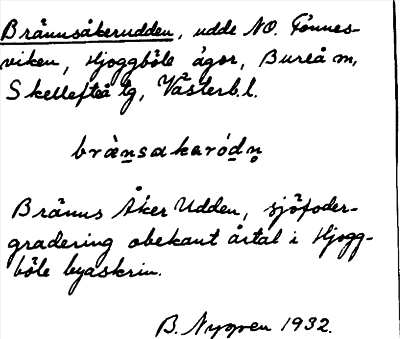 Brännsåkerudden, udde NO. Fönnes-
viken, Hjoggböle ägor, Bureå sn,
Skellefteå tg, Västerb.l.
brànsakaródn
Bränns Åker Udden, sjöfoder-
gradering obekant årtal i Hjogg-
böle byaskrin.
B. Nygren 1932.